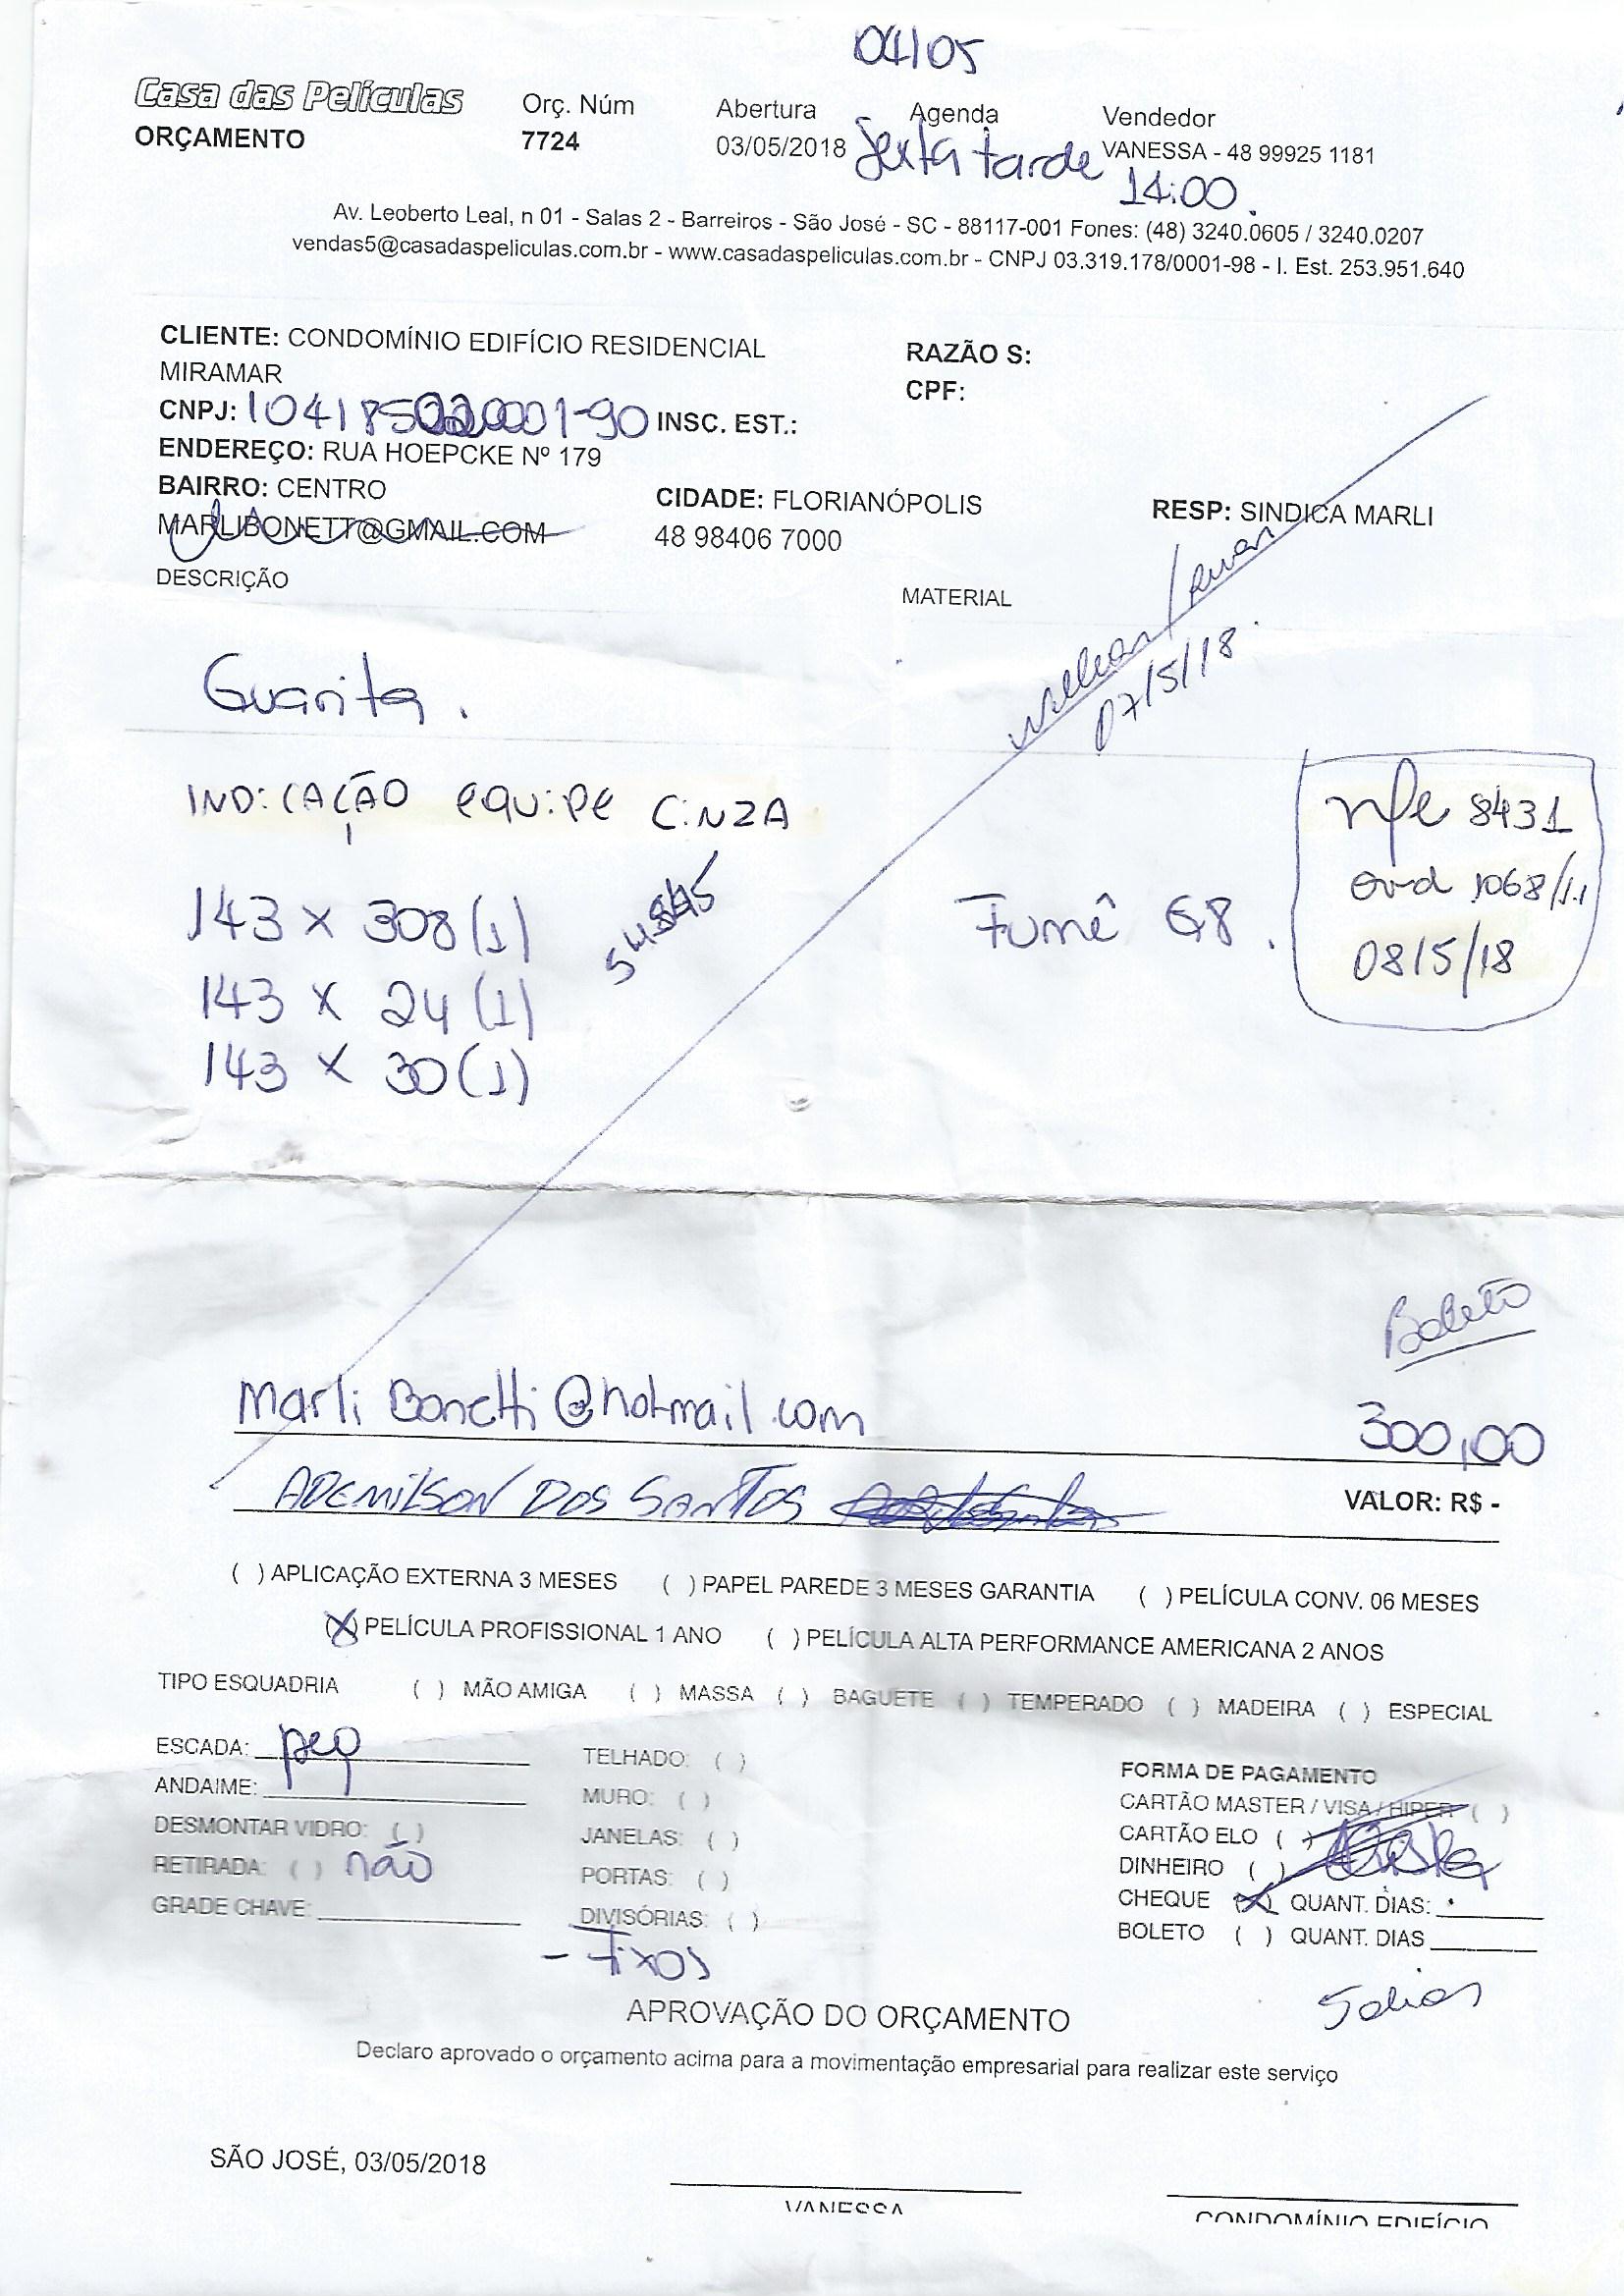 04/05
Casa das Películas
ORÇAMENTO
Orç. Núm
7724
Abertura
03/05/2018
Agenda
Sexta tarde
14:00.
Vendedor
VANESSA - 48 99925 1181
Av. Leoberto Leal, n 01 - Salas 2 - Barreiros - São José - SC - 88117-001 Fones: (48) 3240.0605 / 3240.0207
vendas5@casadaspeliculas.com.br - www.casadaspeliculas.com.br - CNPJ 03.319.178/0001-98 - I. Est. 253.951.640
CLIENTE: CONDOMÍNIO EDIFÍCIO RESIDENCIAL
MIRAMAR
RAZÃO S:
CPF:
CNPJ: INSC. EST.:
ENDEREÇO: RUA HOEPCKE Nº 179
BAIRRO: CENTRO
CIDADE: FLORIANÓPOLIS
RESP: SINDICA MARLI
MARLIBONETT@GMAIL.COM
48 98406 7000
DESCRIÇÃO
MATERIAL
07/5/18.
Guarita.
INDICAÇÃO EQUIPE CINZA
143 x 308 (1)
143 x 24 (1)
143 x 30 (1)
Fumê G8.
nfe 8431
08/5/18
Boleto
Marli Bonetti@hotmail.com
300,00
ADEMILSON DOS SANTOS
VALOR: R$ -
( ) APLICAÇÃO EXTERNA 3 MESES ( ) PAPEL PAREDE 3 MESES GARANTIA ( ) PELÍCULA CONV. 06 MESES
(X) PELÍCULA PROFISSIONAL 1 ANO ( ) PELÍCULA ALTA PERFORMANCE AMERICANA 2 ANOS
TIPO ESQUADRIA ( ) MÃO AMIGA ( ) MASSA ( ) BAGUETE ( ) TEMPERADO ( ) MADEIRA ( ) ESPECIAL
ESCADA: peq
ANDAIME:
DESMONTAR VIDRO: ( )
RETIRADA: ( ) não
GRADE CHAVE:
TELHADO: ( )
MURO: ( )
JANELAS: ( )
PORTAS: ( )
DIVISÓRIAS: ( )
- Fixos
FORMA DE PAGAMENTO
CARTÃO MASTER / VISA / HIPER ( )
CARTÃO ELO ( )
DINHEIRO ( )
CHEQUE (X) QUANT. DIAS:
BOLETO ( ) QUANT. DIAS
5 dias
APROVAÇÃO DO ORÇAMENTO
Declaro aprovado o orçamento acima para a movimentação empresarial para realizar este serviço
SÃO JOSÉ, 03/05/2018
VANESSA
CONDOMÍNIO EDIFÍCIO